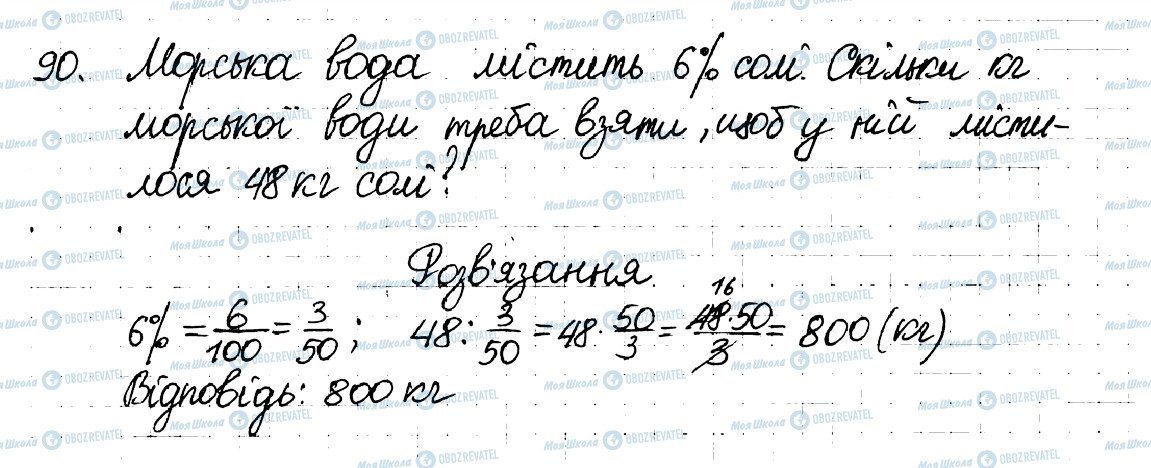 90. Морська вода містить 6% солі. Скільки кг
морської води треба взяти, щоб у ній місти-
лося 48 кг солі?
Розв'язання
6% = 6/100 = 3/50 ; 48 : 3/50 = 48 · 50/3 = 48·50/3 = 800 (кг)
16
Відповідь: 800 кг
МояШкола OBOZREVATEL